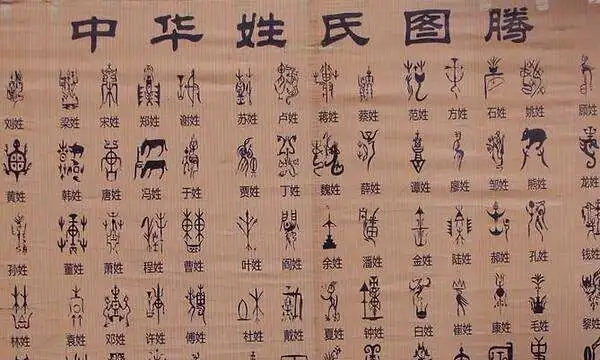 中华姓氏图腾
刘姓 梁姓 宋姓 郑姓 谢姓 苏姓 卢姓 蒋姓 蔡姓 范姓 方姓 石姓 姚姓 顾姓
黄姓 韩姓 唐姓 冯姓 于姓 贾姓 丁姓 魏姓 薛姓 谭姓 廖姓 邹姓 熊姓 龙姓
孙姓 董姓 萧姓 程姓 曹姓 叶姓 阎姓 余姓 潘姓 金姓 陆姓 郝姓 孔姓 钱姓
林姓 袁姓 邓姓 许姓 傅姓 杜姓 戴姓 夏姓 钟姓 白姓 崔姓 康姓 毛姓 黎姓